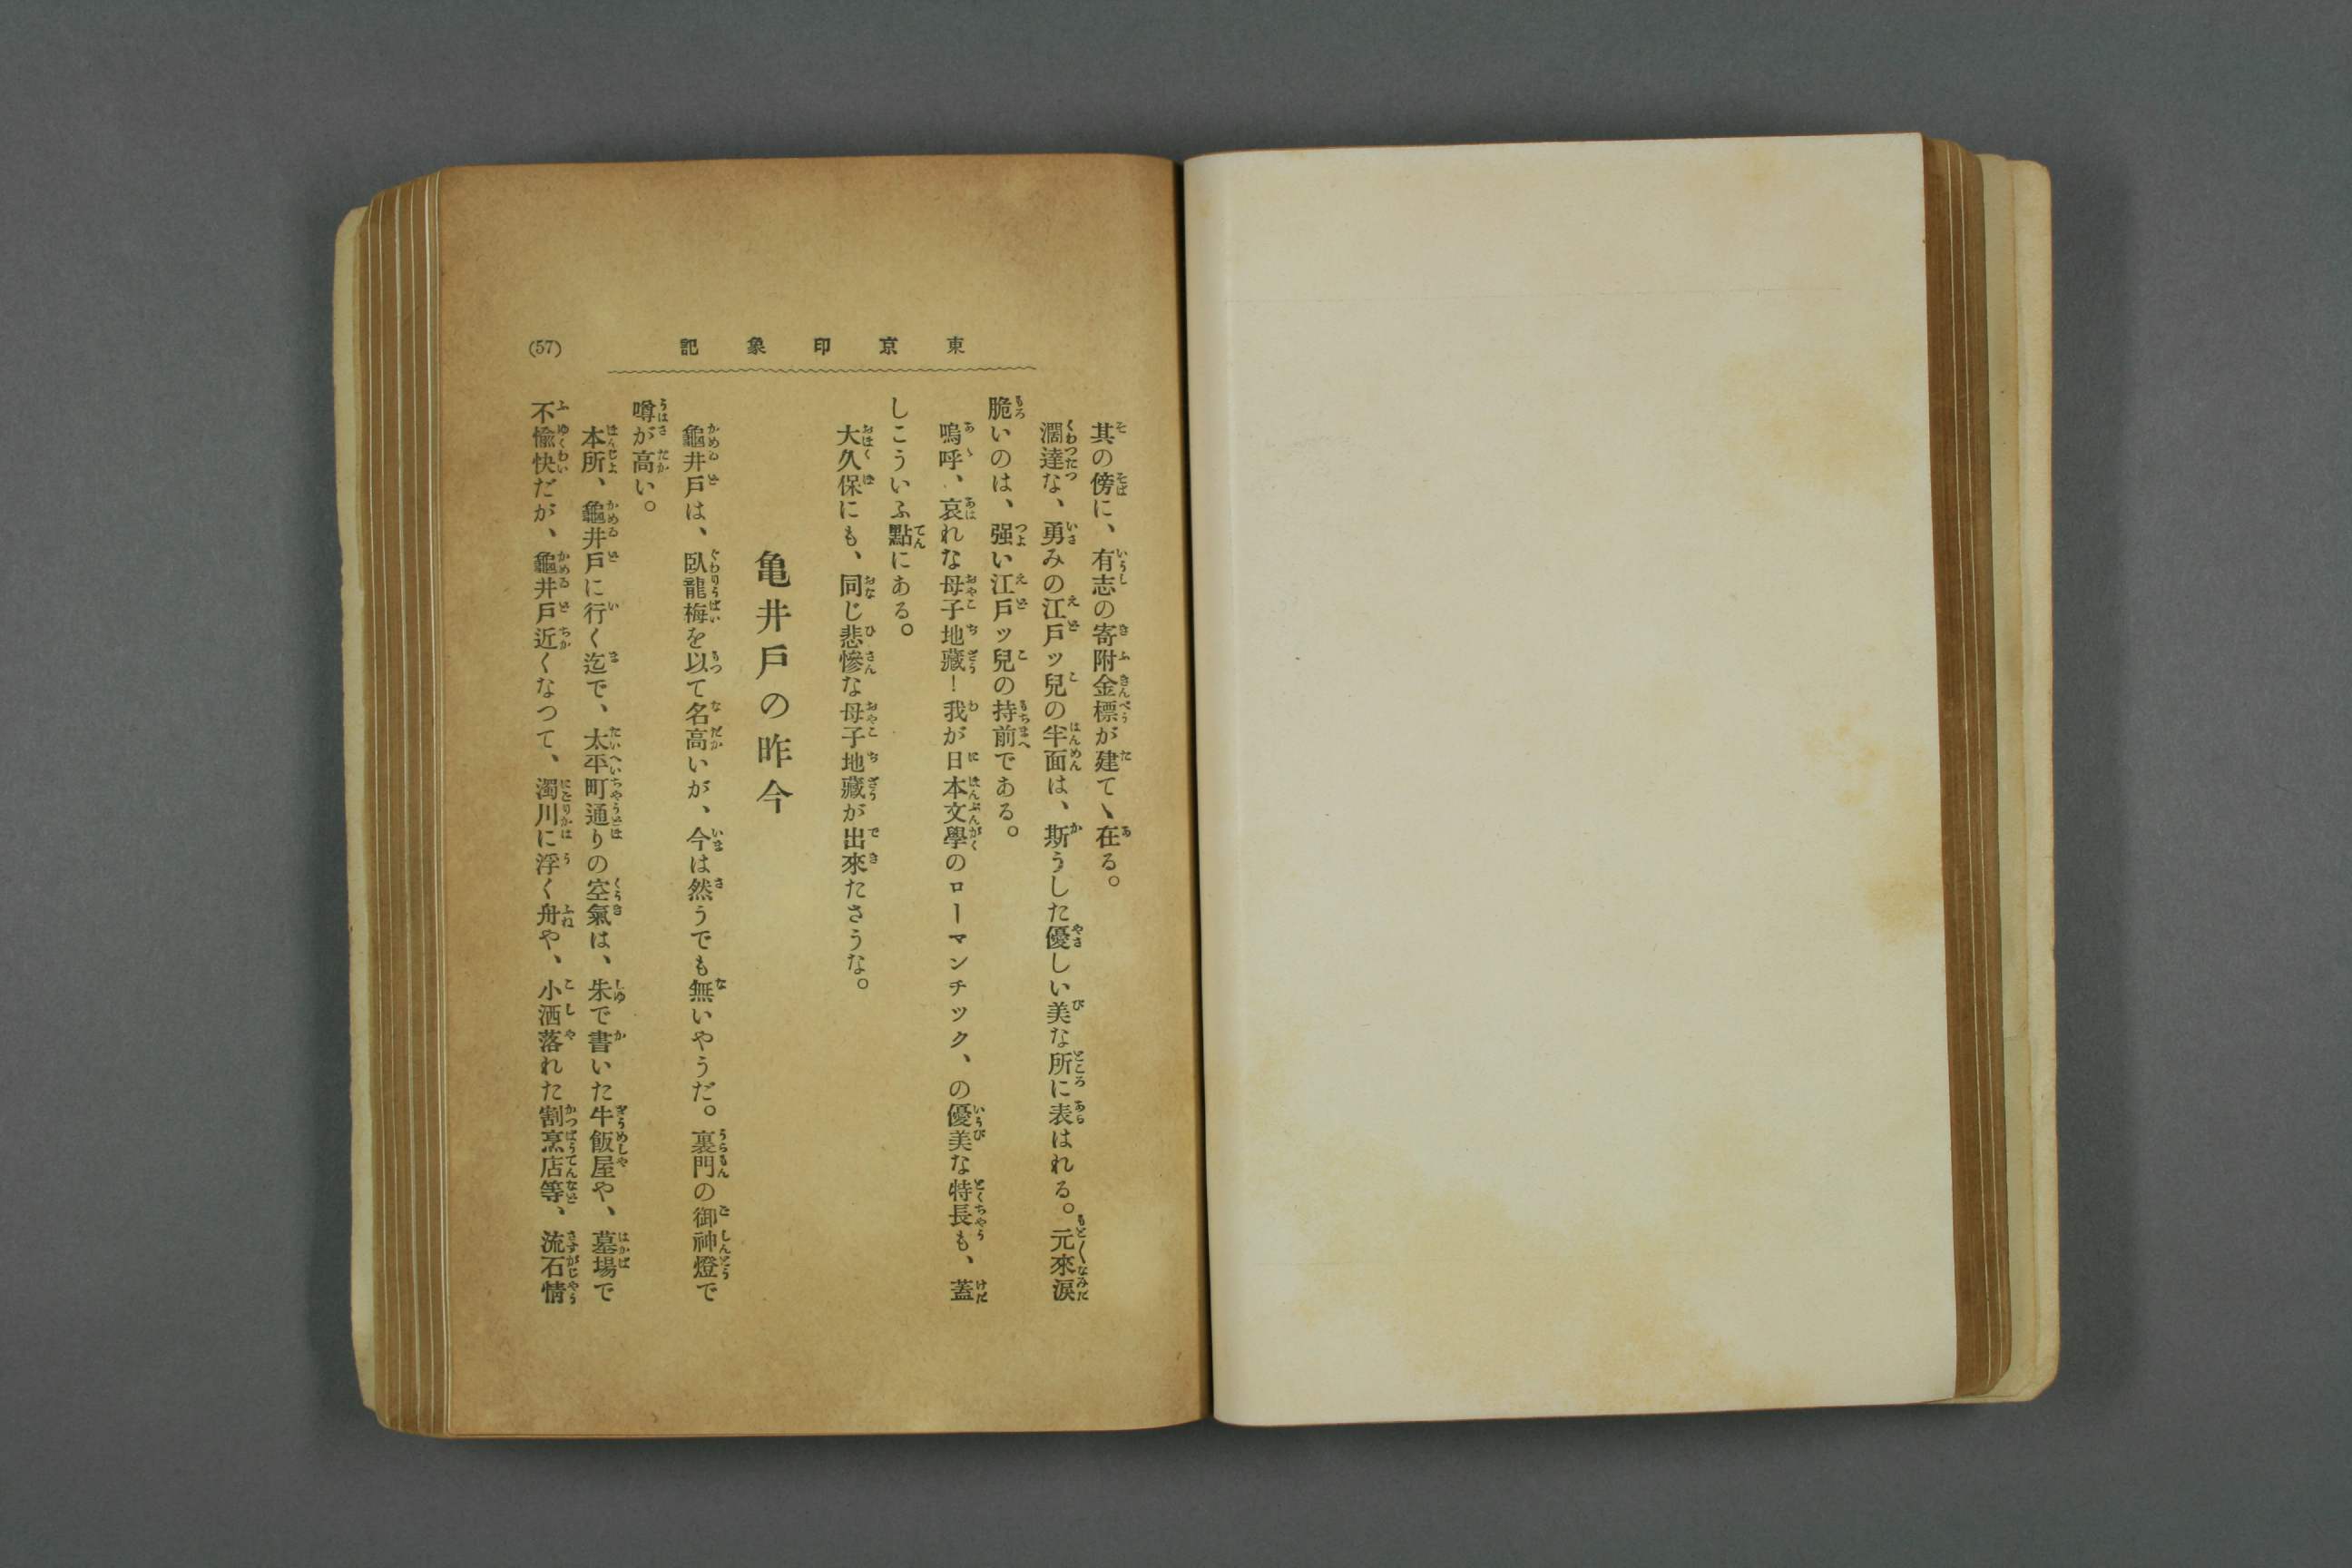 東京印象記
(57)
其の傍に、有志の寄附金標が建てゝ在る。
濶達な、勇みの江戸ッ兒の半面は、斯うした優しい美な所に表はれる。元來涙
脆いのは、强い江戸ッ兒の持前である。
嗚呼、哀れな母子地藏！我が日本文學のローマンチック、の優美な特長も、蓋
しこういふ點にある。
大久保にも、同じ悲慘な母子地藏が出來たさうな。
亀井戸の昨今
龜井戸は、臥龍梅を以て名高いが、今は然うでも無いやうだ。裏門の御神燈で
噂が高い。
本所、龜井戸に行く迄で、太平町通りの空氣は、朱で書いた牛飯屋や、墓場で
不愉快だが、龜井戸近くなつて、濁川に浮く舟や、小洒落れた割烹店等、流石情